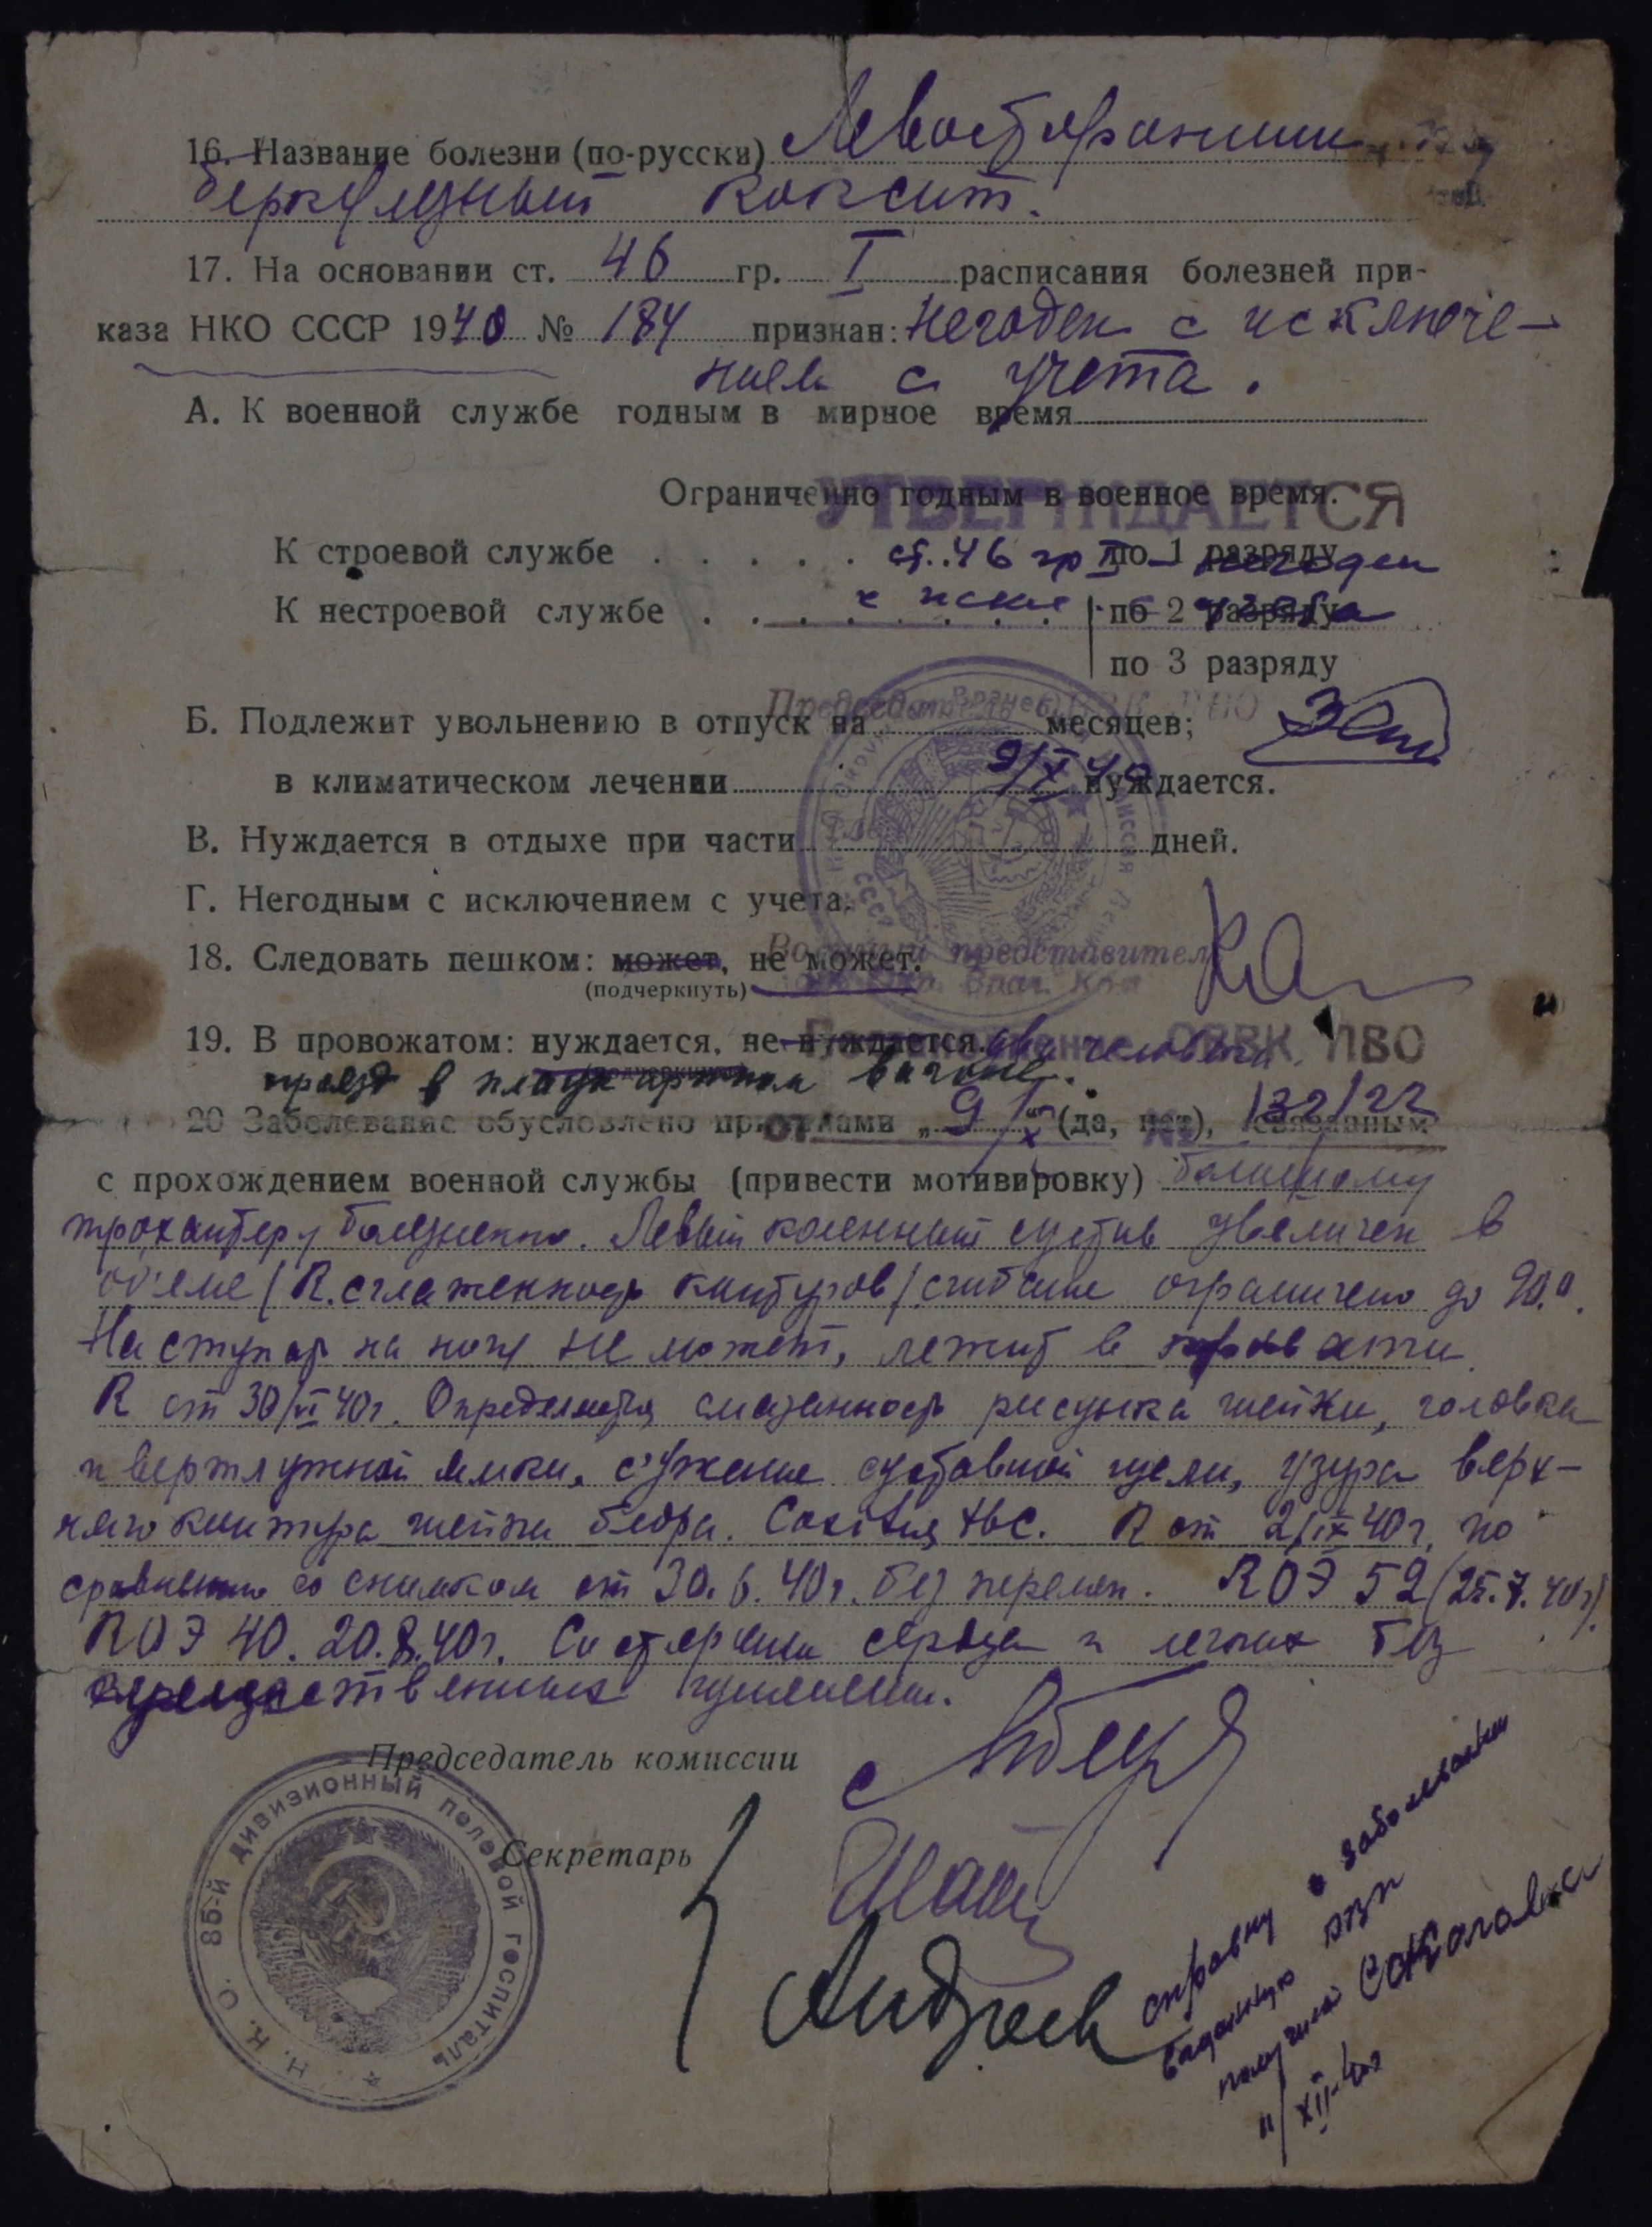 16. Название болезни (по-русски) Левосторонний ту-
беркулезный коксит.
17. На основании ст. 46 гр. I расписания болезней при-
каза НКО СССР 1940 № 184 признан: Негоден с исключе-
нием с учета.
А. К военной службе годным в мирное время
Ограниченно годным в военное время.
УТВЕРЖДАЕТСЯ
К строевой службе . . . . . по 1 разряду
ст. 46 гр I – негоден
К нестроевой службе . . . . . . . . по 2 разряду
с искл. с учета
по 3 разряду
Председатель ОВВК ЛВО
Б. Подлежит увольнению в отпуск на месяцев;
9/X 40
в климатическом лечении нуждается.
В. Нуждается в отдыхе при части дней.
Г. Негодным с исключением с учета.
Военный представитель
18. Следовать пешком: может, не может.
(подчеркнуть)
ОВВК ЛВО
19. В провожатом: нуждается, не нуждается. два человека.
(подчеркнуть)
проезд в плацкартном вагоне.
от 9/X № 132/22
20 Заболевание обусловлено причинами „ “ (да, нет), связанным
с прохождением военной службы (привести мотивировку) большому
трохантеру болезненно. Левый коленный сустав увеличен в
об'еме (R. сглаженность контуров) сгибание ограничено до 90.°.
Наступать на ногу не может, лежит в кровати.
R от 30/VI 40г. Определяется смазанность рисунка шейки, головки
и вертлужной ямки, сужение суставной щели, узура верх-
няго контура шейки бедра. Coxitis tbc. R от 2/IX 40г. по
сравнению со снимком от 30.6.40г. без перемен. РОЭ 52 (25.7.40г).
РОЭ 40. 20.8.40г. Со стороны сердца и легких без
существенных изменений.
Председатель комиссии
Секретарь
Андреев
Н. К. О. 85-й ДИВИЗИОННЫЙ ПОЛЕВОЙ ГОСПИТАЛЬ
справку о заболевании
выданную
получила Соколова
11/XII-40г